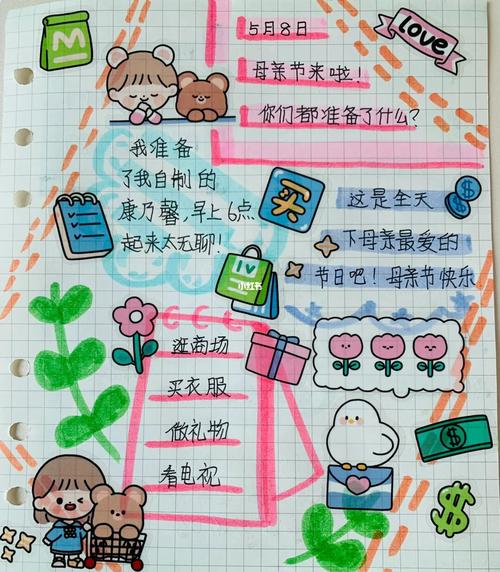 5月8日
love
母亲节来啦!
你们都准备了什么?
M
我准备
了我自制的
康乃馨,早上6点
起来太无聊!
买
这是全天
下母亲最爱的
节日吧!母亲节快乐
小红书
逛商场
买衣服
做礼物
看电视